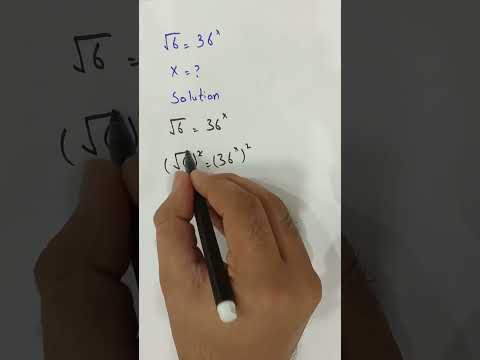 √6 = 36ˣ
x = ?
Solution
√6 = 36ˣ
(√6)² = (36ˣ)²